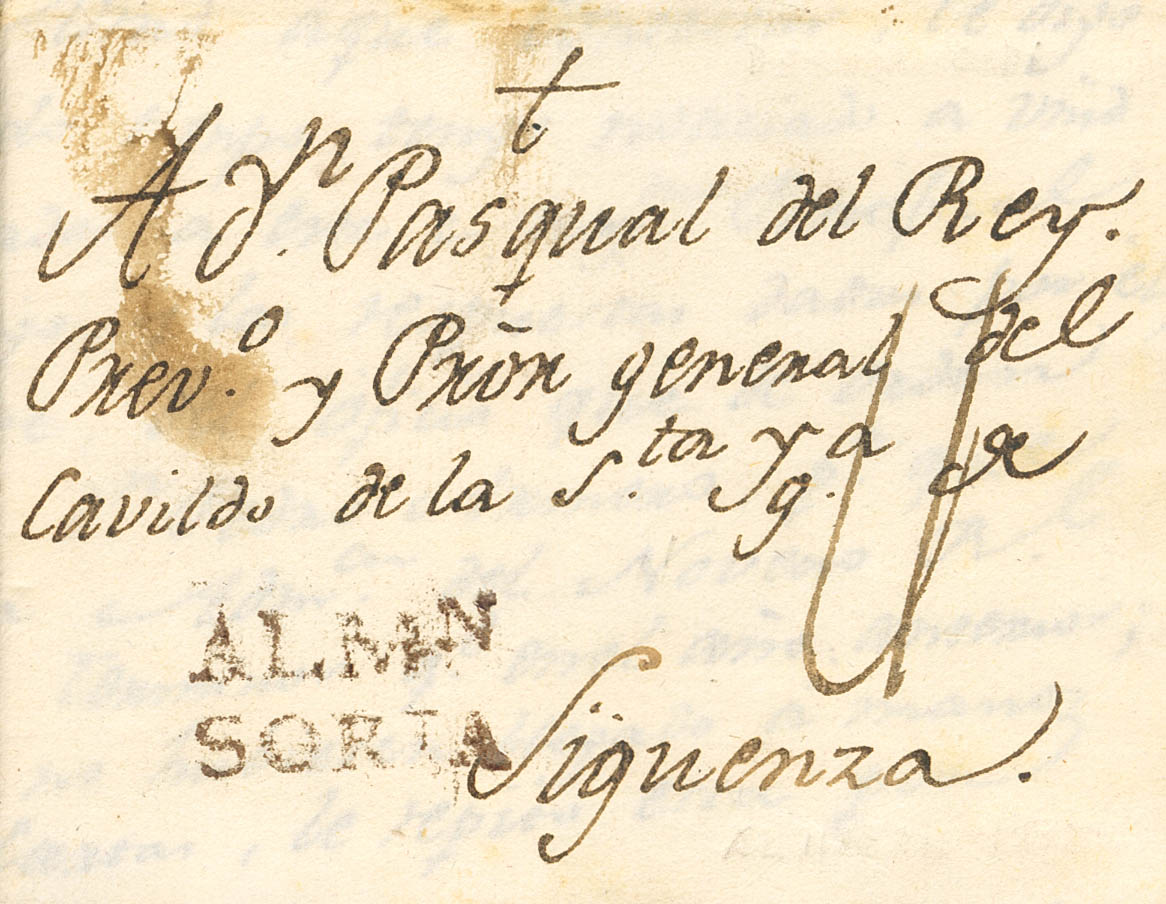 †
A Dn. Pasqual del Rey.
Prev.o y Prōn general del
Cavildo de la S.ta Yg.a de
ALMN
SORIA
Siguenza.